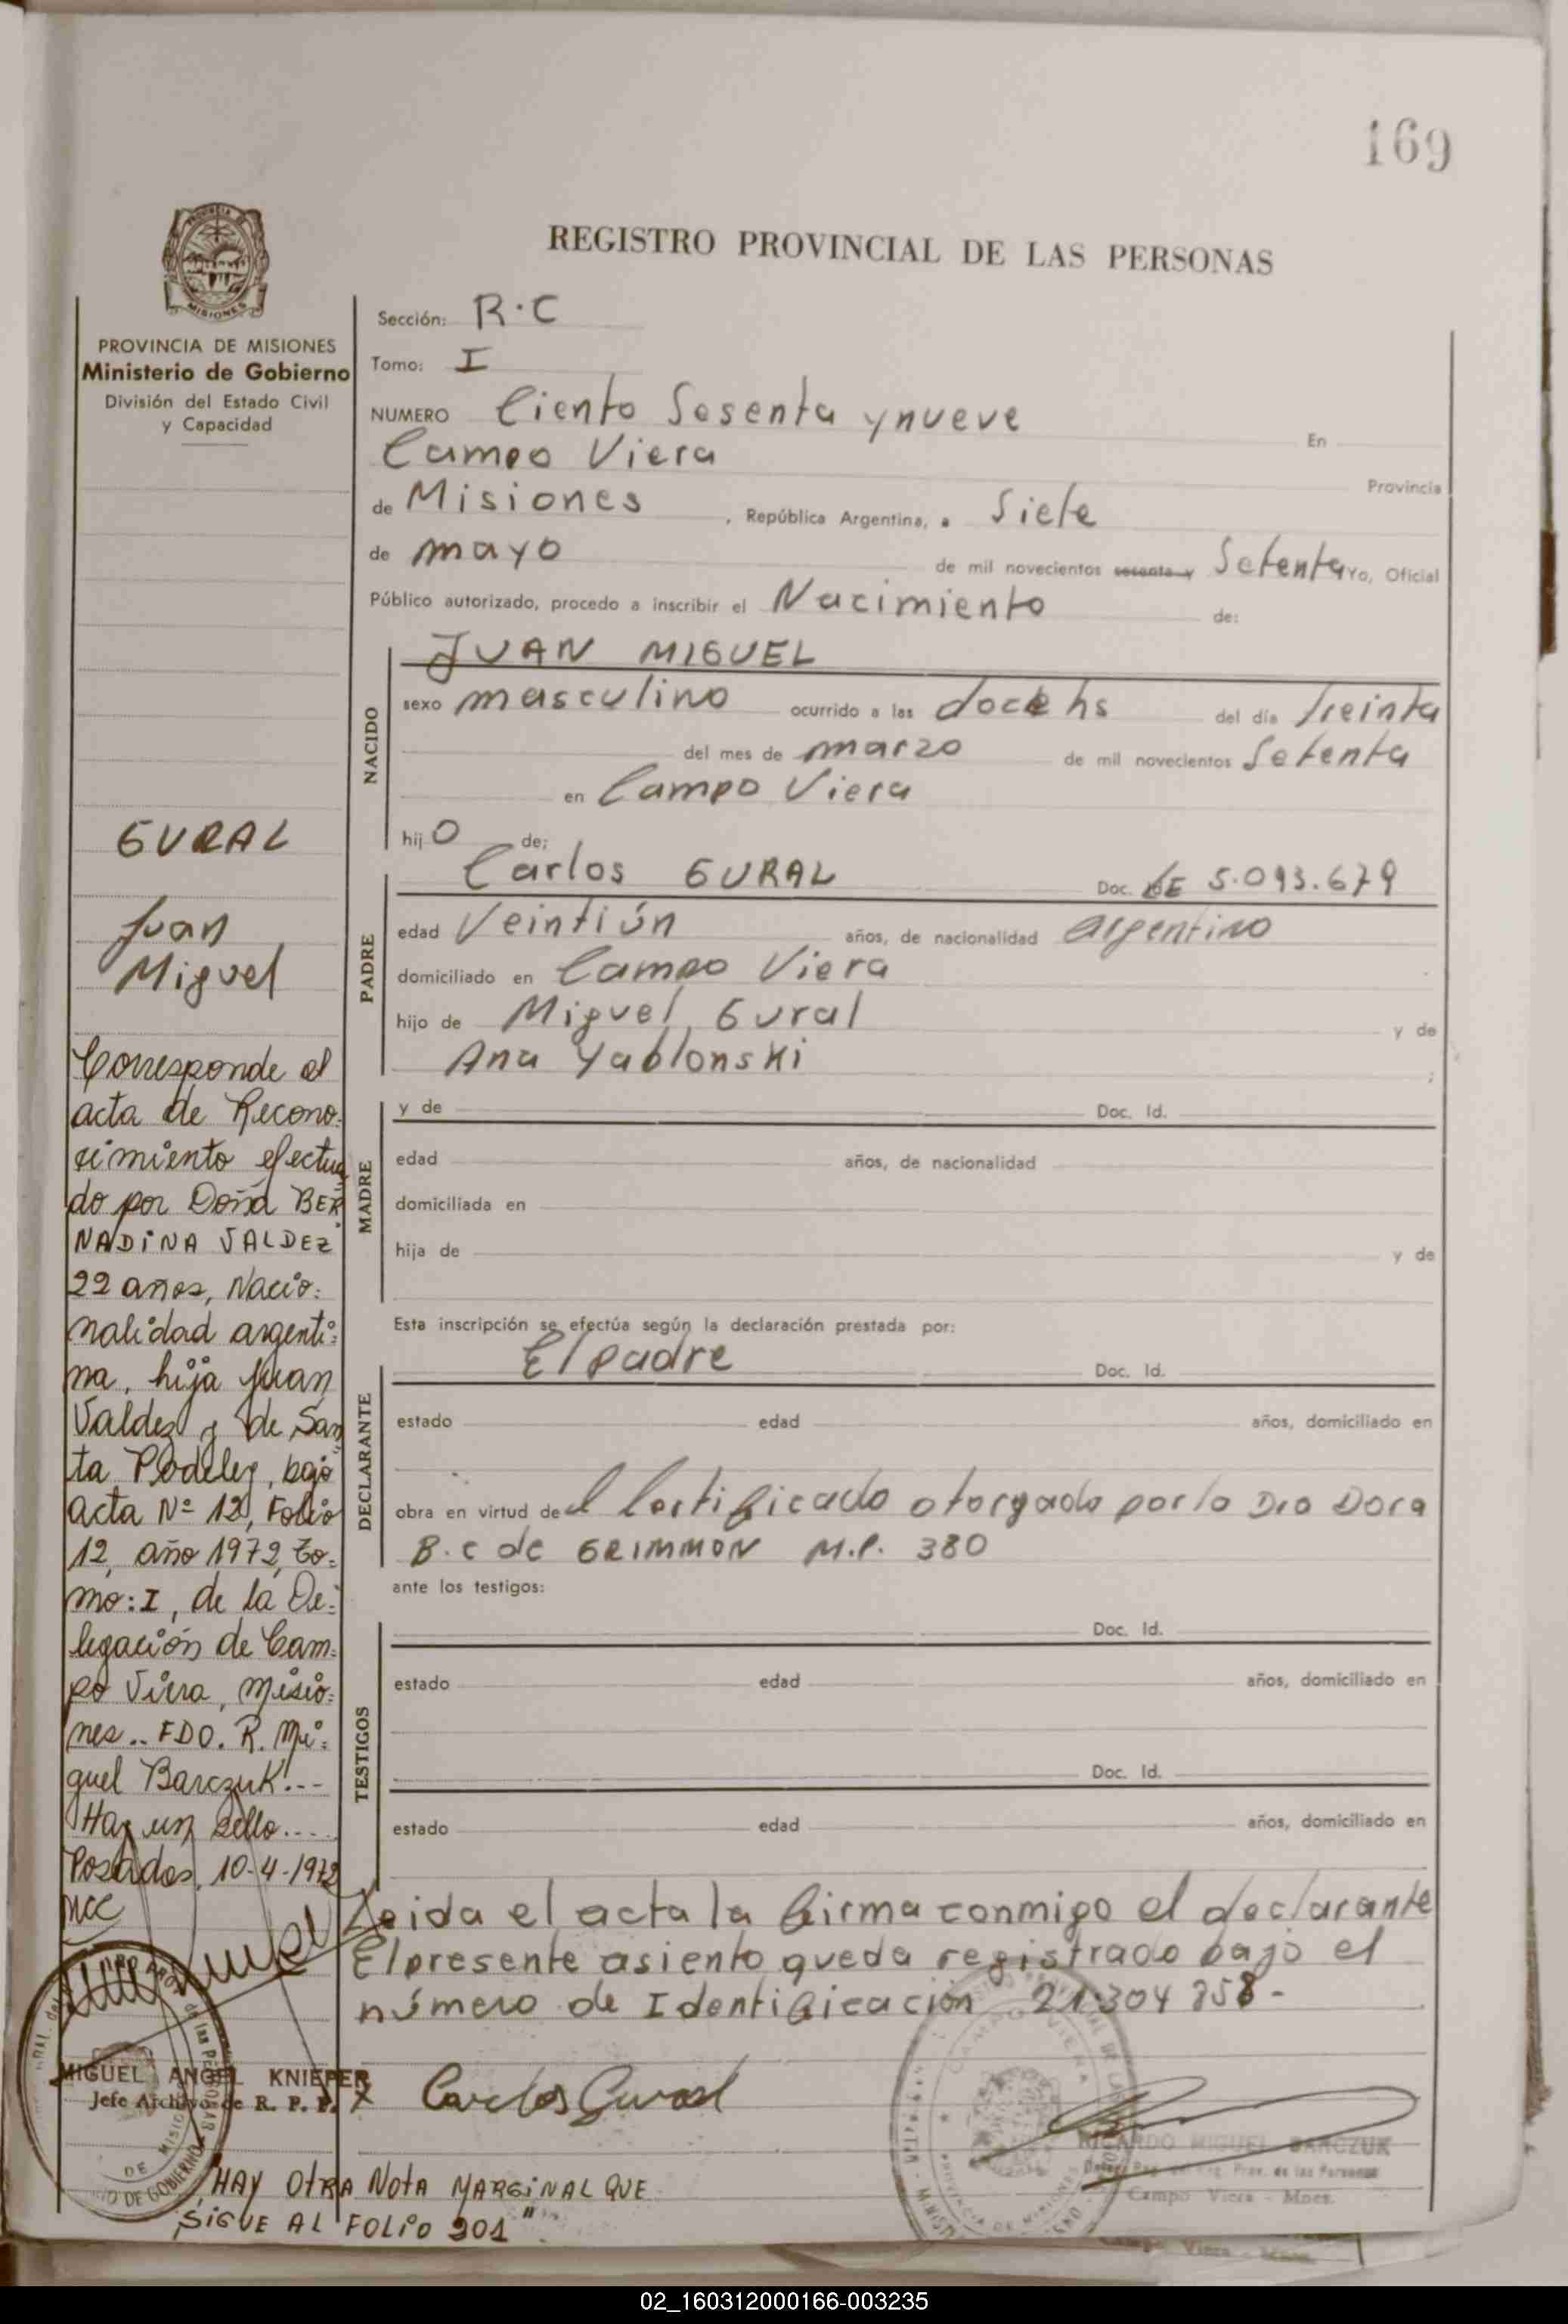 169
REGISTRO PROVINCIAL DE LAS PERSONAS
MISIONES
PROVINCIA DE MISIONES
Ministerio de Gobierno
División del Estado Civil
y Capacidad
GURAL
Juan
Miguel
Corresponde al
acta de Recono-
cimiento efectua
do por Doña BER
NADINA VALDEZ
22 años, Nacio-
nalidad argenti-
na, hija Juan
Valdez y de San
ta Podeley, bajo
acta Nº 12, Folio
12, año 1972, To-
mo: I, de la De-
legación de Cam-
po Viera, Misio-
nes.. FDO. R. Mi-
guel Barczuk!...
Hay un sello....
Posadas, 10-4-1972
MCC
MIGUEL ANGEL KNIEPER
Jefe Archivo de R. P. P.
Sección: R.C
Tomo: I
NUMERO Ciento Sesenta y nueve En
Campo Viera Provincia
de Misiones, República Argentina, a Siete
de mayo de mil novecientos sesenta y Setenta Yo, Oficial
Público autorizado, procedo a inscribir el Nacimiento de:
NACIDO
JUAN MIGUEL
sexo masculino ocurrido a las doce hs del día treinta
del mes de marzo de mil novecientos Setenta
en Campo Viera
hijO de;
PADRE
Carlos GURAL Doc. LE 5.093.679
edad Veintiún años, de nacionalidad argentino
domiciliado en Campo Viera
hijo de Miguel Gural y de
Ana Yablonski ;
MADRE
y de Doc. Id.
edad años, de nacionalidad
domiciliada en
hija de y de
Esta inscripción se efectúa según la declaración prestada por:
DECLARANTE
El padre Doc. Id.
estado edad años, domiciliado en
obra en virtud del Certificado otorgado por la Dra Dora
B.c de GRIMMON M.P. 380
ante los testigos:
TESTIGOS
Doc. Id.
estado edad años, domiciliado en
Doc. Id.
estado edad años, domiciliado en
Leida el acta la firma conmigo el declarante
El presente asiento queda registrado bajo el
número de Identificación 21.304 858-
x Carlos Gural
RICARDO MIGUEL BARCZUK
Campo Viera - Mnes.
HAY OTRA NOTA MARGINAL QUE
SIGUE AL FOLIO 201"
Campo Viera - Mnes.
02_160312000166-003235